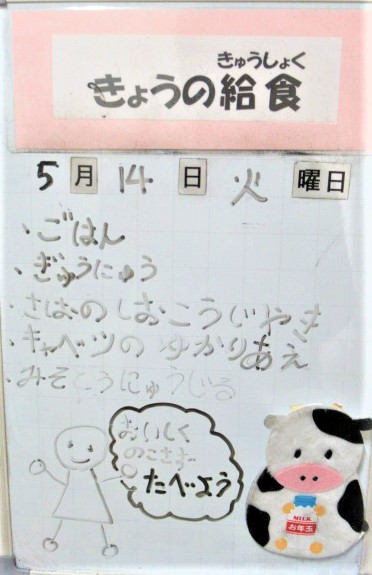 きゅうしょく
きょうの給食
5月14日 火 曜日
・ごはん
・ぎゅうにゅう
・さばのしおこうじやき
・キャベツのゆかりあえ
・みそとうにゅうじる
おいしく
のこさず
たべよう
MILK
お年玉